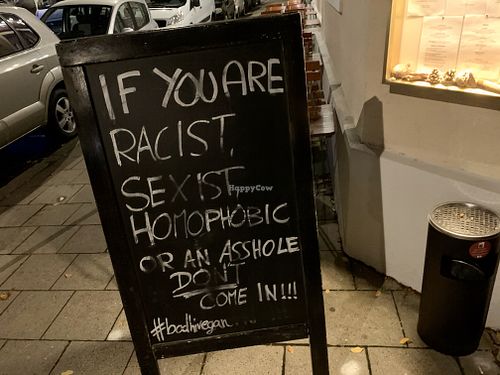 IF YOU ARE
RACIST,
SEXIST,
HOMOPHOBIC
OR AN ASSHOLE
DON'T
COME IN!!!
#bodhivegan
HappyCow